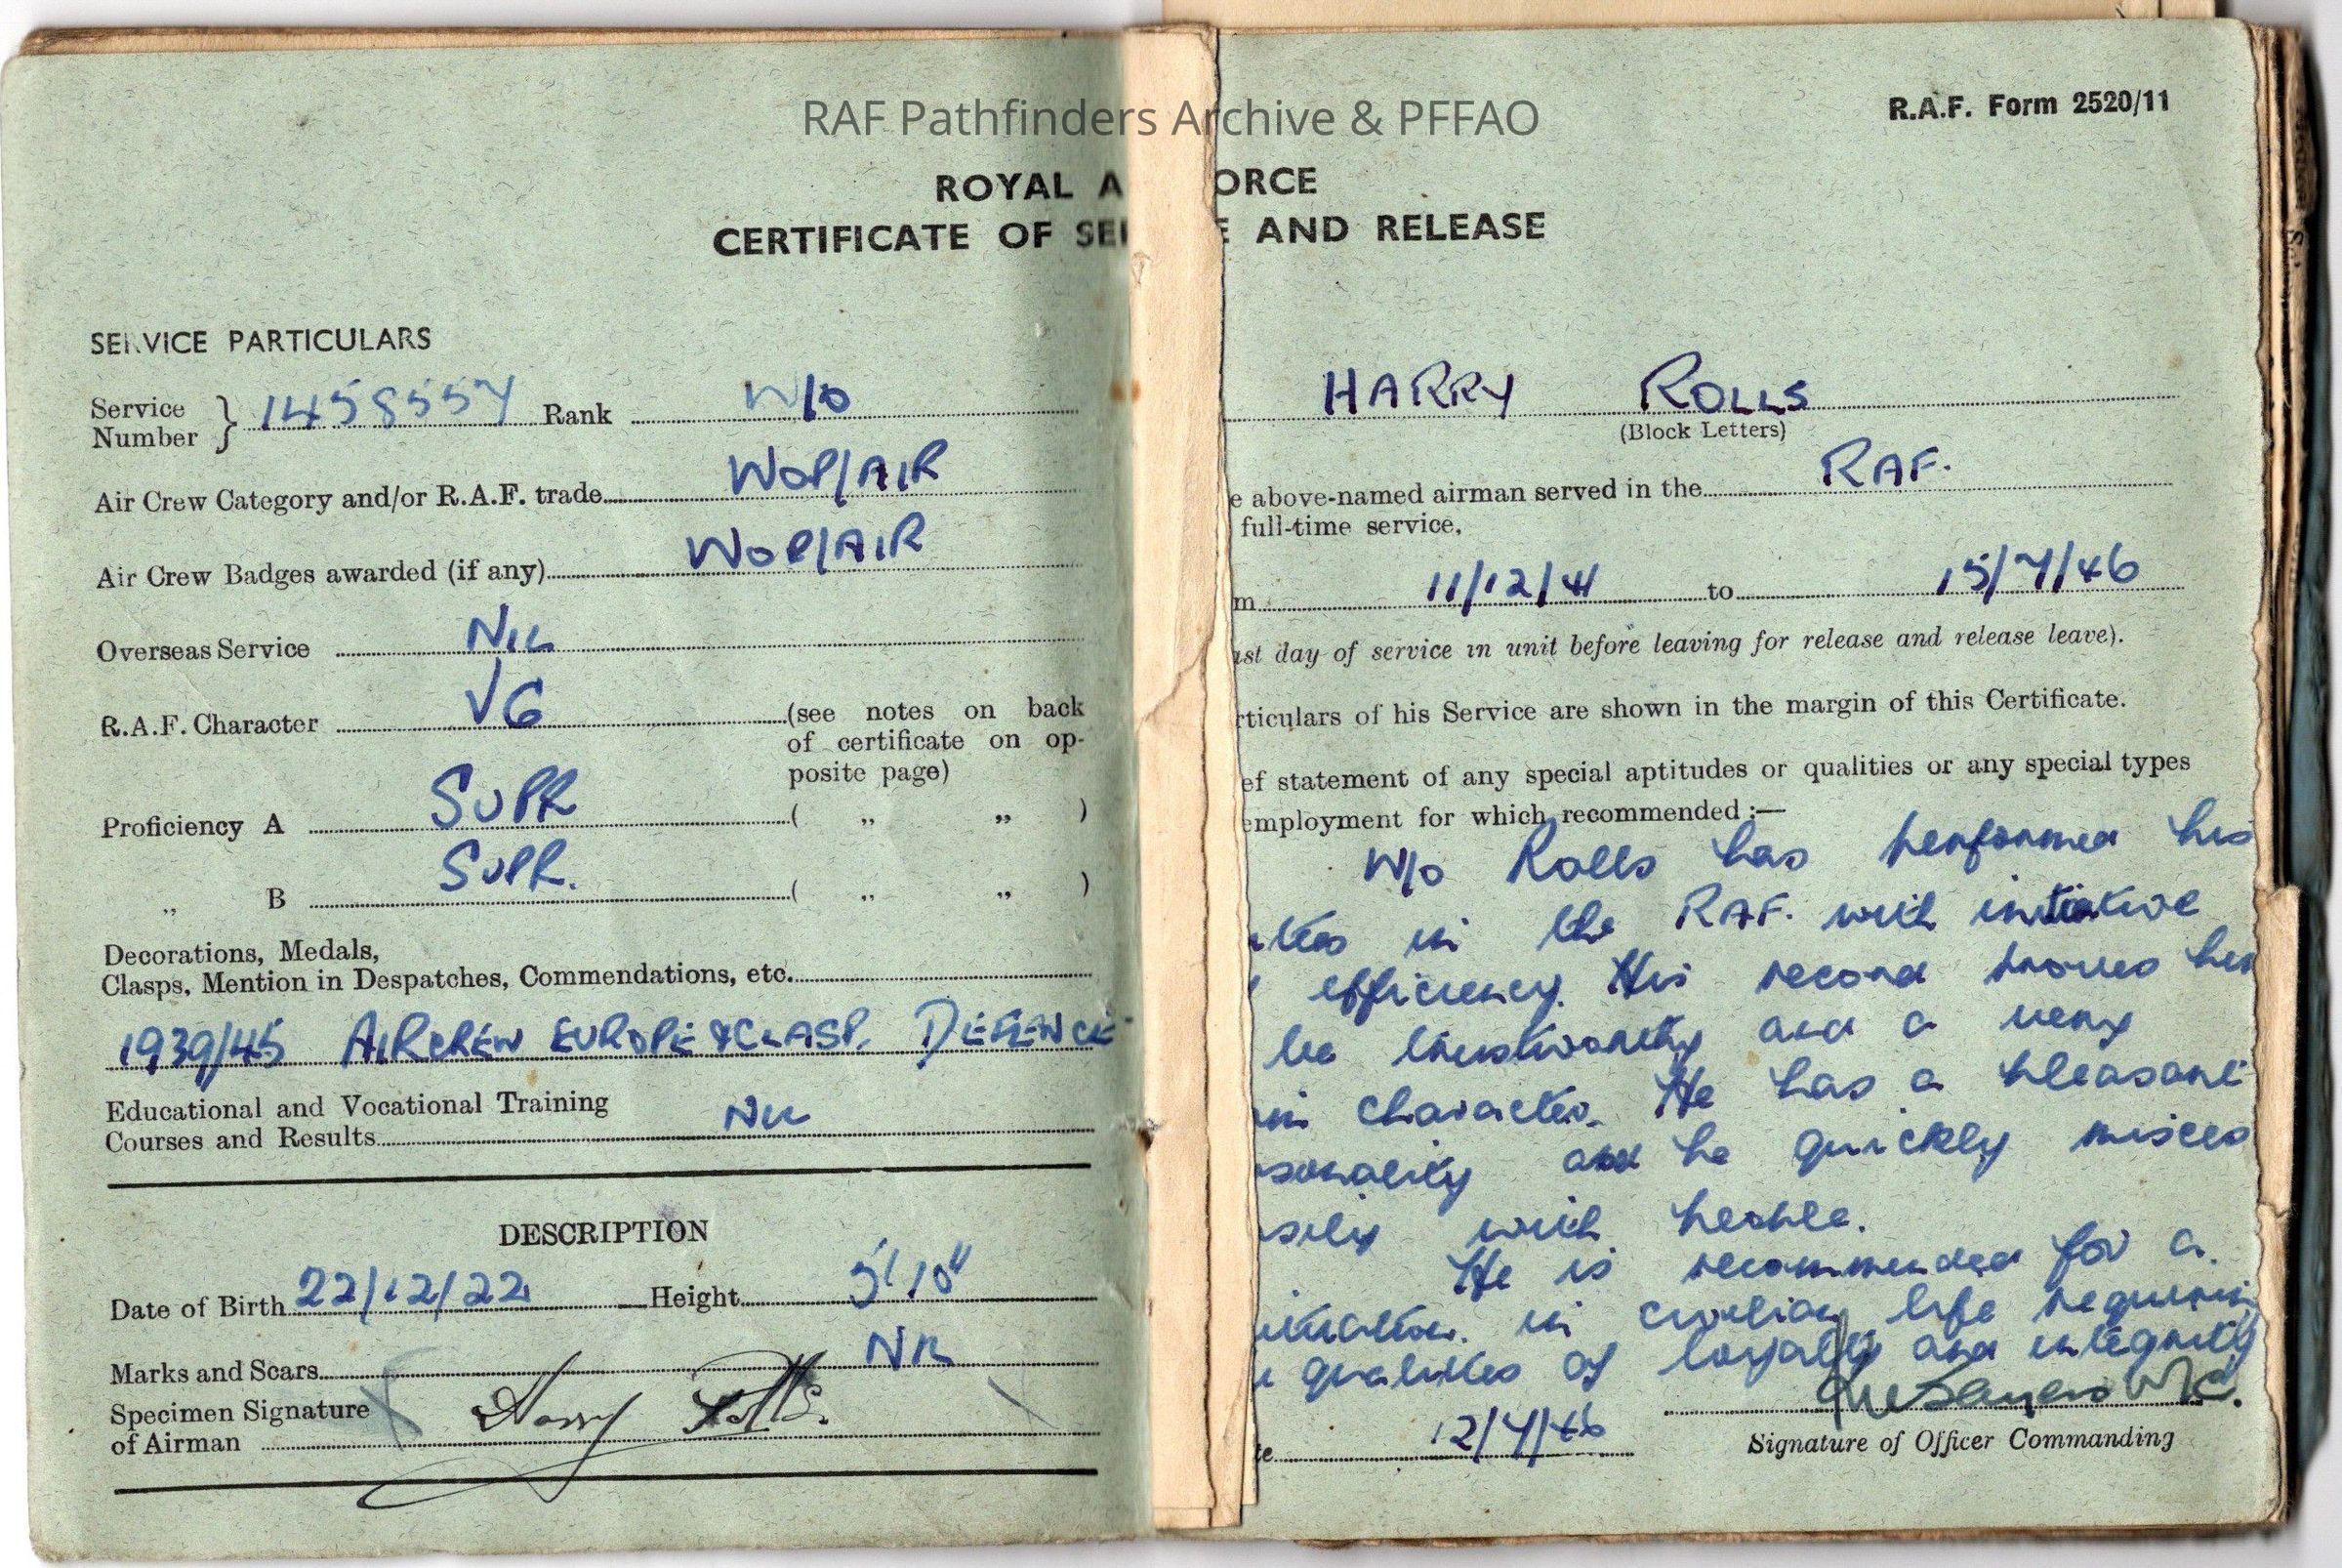 RAF Pathfinders Archive & PFFAO
R.A.F. Form 2520/11
ROYAL A ORCE
CERTIFICATE OF SE E AND RELEASE
SERVICE PARTICULARS
Service Number } 1458557 Rank W/O
Air Crew Category and/or R.A.F. trade WOP/AIR
Air Crew Badges awarded (if any) WOP/AIR
Overseas Service NIL
R.A.F. Character VG (see notes on back
of certificate on op-
posite page)
Proficiency A SUPR ( „ „ )
„ B SUPR. ( „ „ )
Decorations, Medals,
Clasps, Mention in Despatches, Commendations, etc.
1939/45 AIRCREW EUROPE & CLASP. DEFENCE
Educational and Vocational Training
Courses and Results NIL
DESCRIPTION
Date of Birth 22/12/22 Height 5' 10"
Marks and Scars NIL
Specimen Signature
of Airman Harry Rolls.
HARRY ROLLS
(Block Letters)
e above-named airman served in the RAF.
full-time service,
m 11/12/41 to 15/7/46
ast day of service in unit before leaving for release and release leave).
rticulars of his Service are shown in the margin of this Certificate.
ef statement of any special aptitudes or qualities or any special types
employment for which recommended :—
W/O Rolls has performed his
uties in the RAF. with initiative
efficiency. His record proves him
be trustworthy and a very
character. He has a pleasant
sonality and he quickly mixes
sily with people.
He is recommended for a
in civilian life requiring
qualities of loyalty and integrity
te 12/7/46
Signature of Officer Commanding